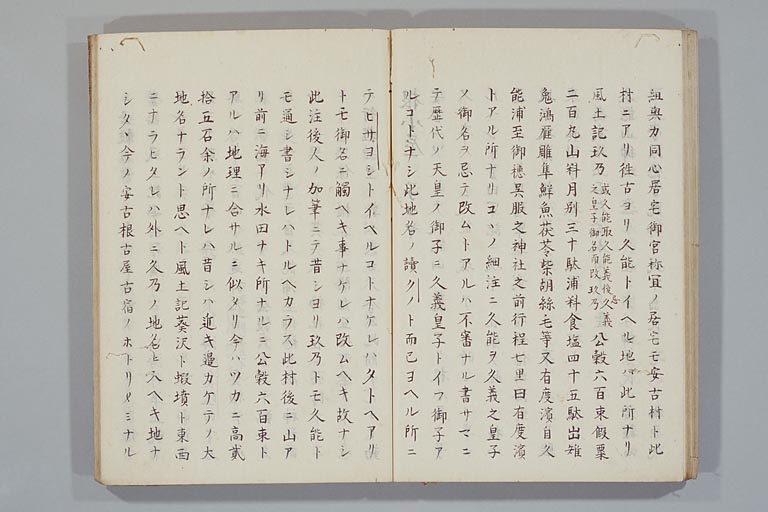 組與力同心居宅御宮祢宜ノ居宅モ安古村ト此
村ニアリ徃古ヨリ久能トイヘル地ハ此所ナリ
風土記玖乃 或久能取久能義後久義
之皇子御名而改玖乃 公穀六百束假粟
二百九山料月別三十駄浦料食塩四十五駄出雉
兔鴻雁雕隼鮮魚茯苓柴胡絲毛等又有度濱自久
能浦至御穂呉服之神社之前行程七里曰有度濱
トアル所ナリコヽノ細注ニ久能ヲ久義之皇子
ノ御名ヲ忌テ改ムトアルハ不審ナル書サマニ
テ歴代ノ天皇ノ御子ニ久義皇子トイフ御子ア
ルコトナシ此地名ノ讀クノト而已ヨヘル所ニ
テヒサヨシトイヘルコトナケレハタトヘアリ
トモ御名ニ觸ヘキ事ナケレハ改ムヘキ故ナシ
此注後人ノ加筆ニテ昔シヨリ玖乃トモ久能ト
モ通シ書シナレハトルヘカラス此村後ニ山ア
リ前ニ海アリ水田ナキ所ナルニ公穀六百束ト
アルハ地理ニ合サルニ似タリ今ハツカニ高貳
拾五石余ノ所ナレハ昔シハ近キ邊カケテノ大
地名ナラント思ヘト風土記葵沢ト蝦墳ト東西
ニナラヒタレハ外ニ久乃ノ地名ヒヘキ地ナ
シタヽ今ノ安古根古屋古宿ノホトリノミナル